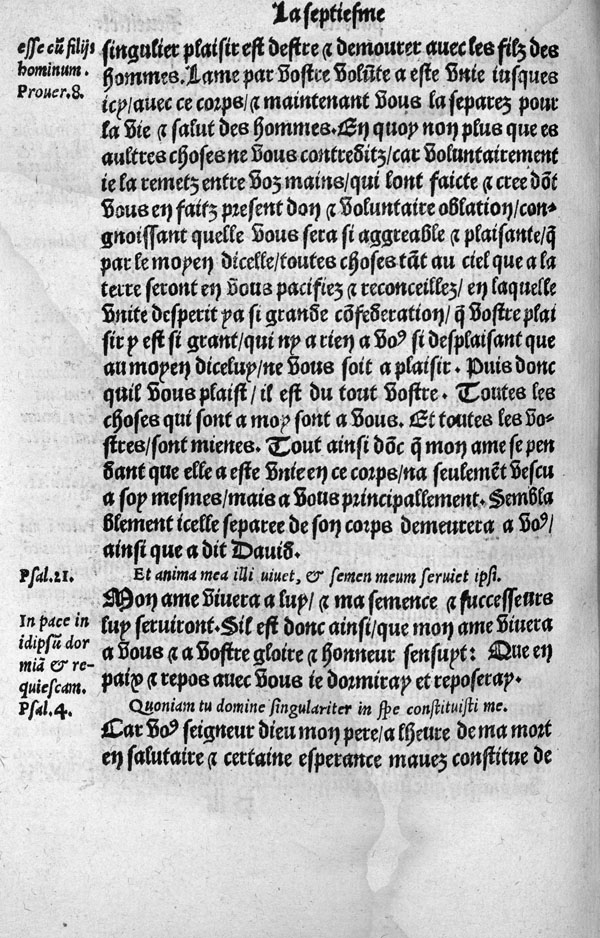 La septiesme
esse cũ filijs
hominum.
Prouer.8.
singulier plaisir est destre ⁊ demourer auec les filz des
hommes. Lame par vostre volũte a este vnie iusques
icy/auec ce corps/⁊ maintenant vous la separez pour
la vie ⁊ salut des hommes. En quoy non plus que es
aultres choses ne vous contreditz/car voluntairement
ie la remetz entre voz mains/qui lont faicte ⁊ cree dõt
vous en faitz present don ⁊ voluntaire oblation/con-
gnoissant quelle vous sera si aggreable ⁊ plaisante/q̃
par le moyen dicelle/toutes choses tãt au ciel que a la
terre seront en vous pacifiez ⁊ reconceillez/ en laquelle
vnite desperit ya si grande cõfederation/ q̃ vostre plai
sir y est si grant/qui ny a rien a voꝰ si desplaisant que
au moyen diceluy/ne vous soit a plaisir. Puis donc
quil vous plaist/ il est du tout vostre. Toutes les
choses qui sont a moy sont a vous. Et toutes les vo-
stres/sont mienes. Tout ainsi dõc q̃ mon ame se pen
dant que elle a este vnie en ce corps/na seulemẽt vescu
a soy mesmes/mais a vous principallement. Sembla
blement icelle separee de son corps demeurera a voꝰ/
ainsi que a dit David.
Psal.21.
Et anima mea illi viuet, & semen meum seruiet ipsi.
Mon ame vivera a luy/ ⁊ ma semence ⁊ successeurs
luy serviront. Sil est donc ainsi/que mon ame vivera
a vous ⁊ a vostre gloire ⁊ honneur sensuyt: Que en
paix ⁊ repos avec vous ie dormiray et reposeray.
In pace in
idipsũ dor
miã & re-
quiescam.
Psal.4.
Quoniam tu domine singulariter in spe constituisti me.
Car voꝰ seigneur dieu mon pere/a lheure de ma mort
en salutaire ⁊ certaine esperance mauez constitue de